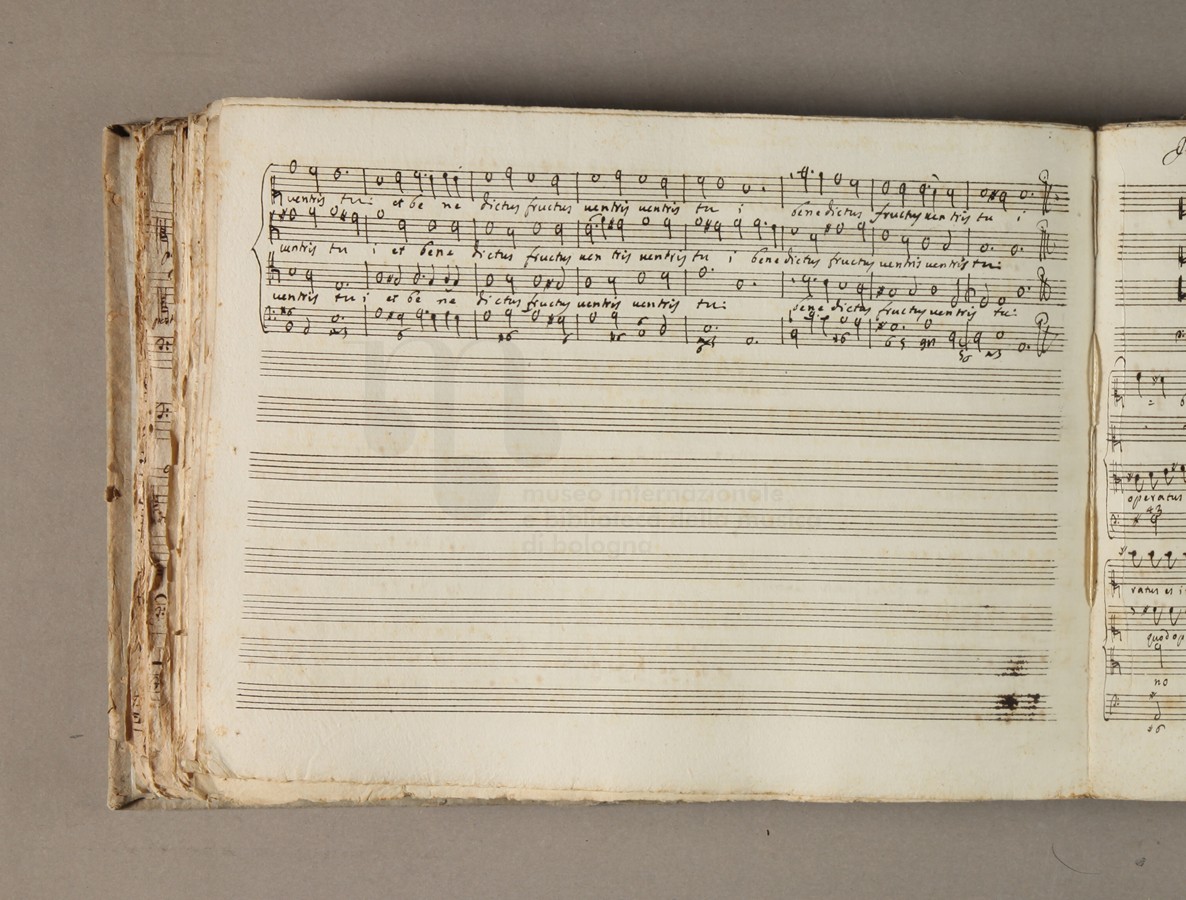 ventris tui et be ne dictus fructus ventris ventris tu i benedictus fructus ventris tu i
ventris tu i et bene dictus fructus ven tris ventris tu i benedictus fructus ventris ventris tui
ventris tui et be ne dictus fructus ventris ventris tui benedictus fructus ventris tui
museo internazionale
e biblioteca della musica
di bologna
operatus
ratus es i
quod op
no